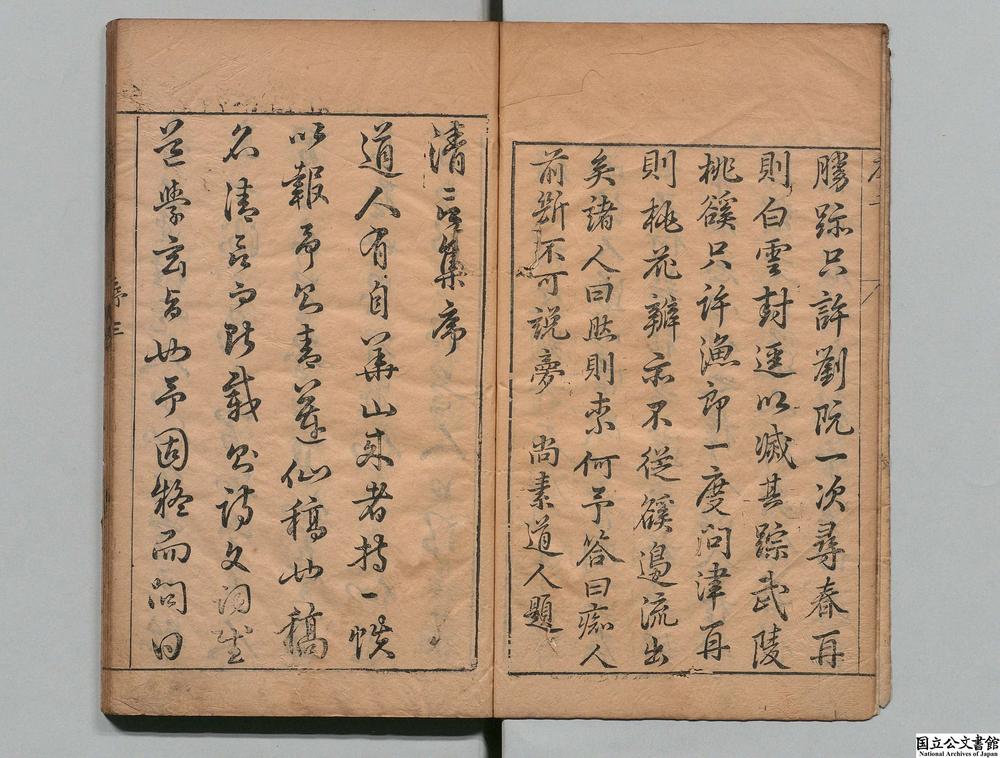 勝跡只許劉阮一次尋春再
則白雲封逕以滅其踪武陵
桃谿只許漁郎一度问津再
則桃花瓣亦不從谿邉流出
矣諸人曰然則柰何予答曰痴人
前斷不可説夢 尚素道人題
清言集序
道人有自華山来者持一帙
以報予曰青蓮仙稿也稿
名清言而所載皆詩文词
學玄旨也予因疑而問曰
序三
国立公文書館
National Archives of Japan